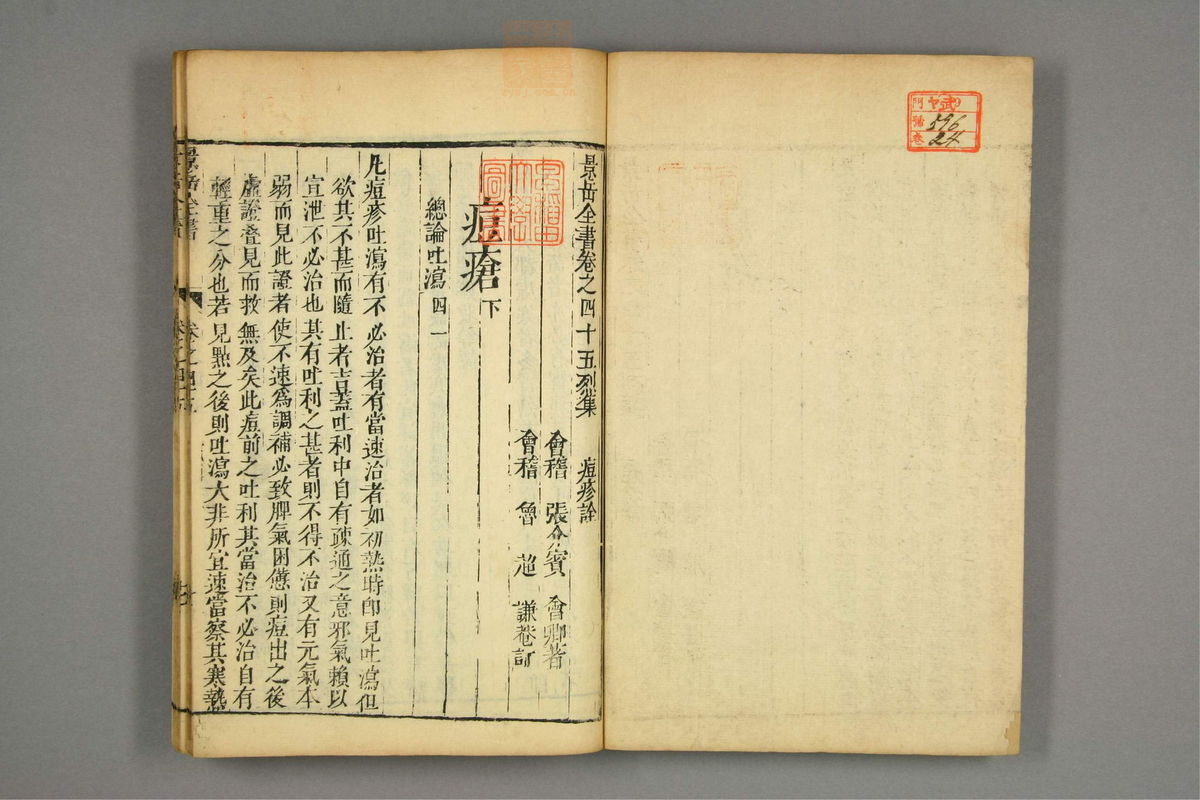 景岳全書卷之四十五烈集 痘疹詮
會稽 張介賓 會卿著
會稽 魯超 謙菴訂
痘瘡 下
總論吐瀉 四一
凡痘疹吐瀉有不必治者有當速治者如初熱時卽見吐瀉但
欲其不甚而隨止者吉蓋吐利中自有疎通之意邪氣賴以
宣泄不必治也其有吐利之甚者則不得不治又有元氣本
弱而見此證者使不速爲調補必致脾氣困憊則痘出之後
虛證疊見而救無及矣此痘前之吐利其當治不必治自有
輕重之分也若見點之後則吐瀉大非所宜速當察其寒熱
門
號 596
卷 24